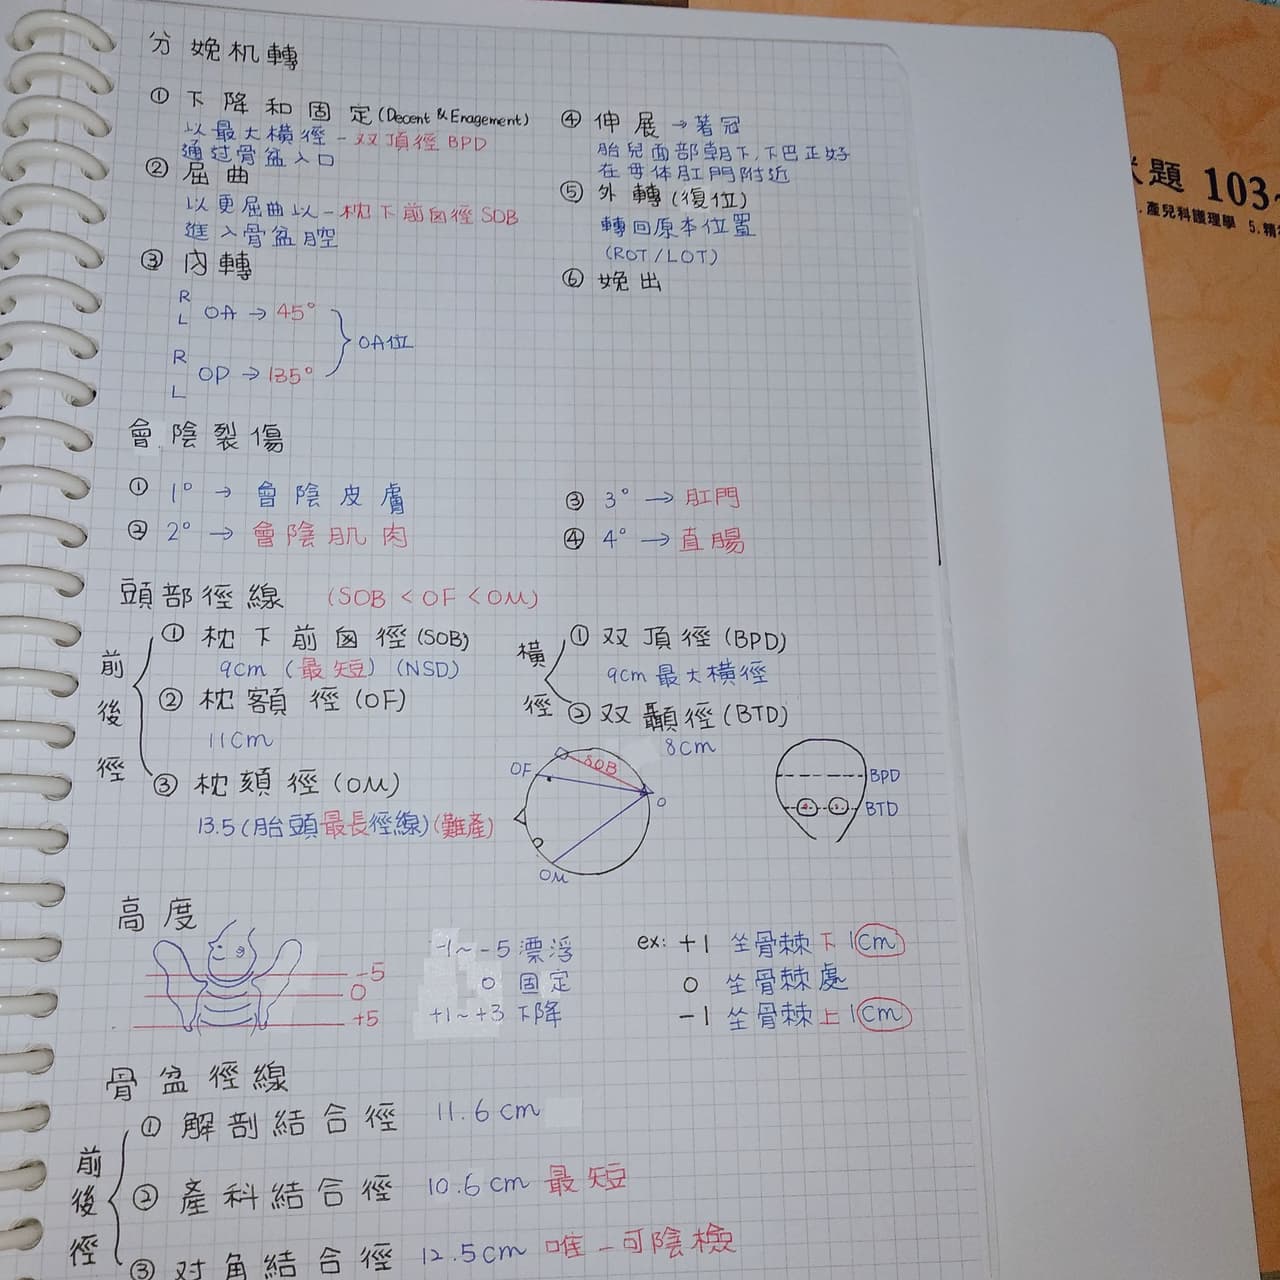 分娩机轉
① 下降和固定(Decent & Enagement)
以最大橫徑-双頂徑BPD
通过骨盆入口
② 屈曲
以更屈曲以-枕下前囟徑SOB
進入骨盆腔
③ 內轉
R
L OA → 45°
R
L OP → 135°
OA位
④ 伸展→著冠
胎兒面部朝下,下巴正好
在母体肛門附近
⑤ 外轉(復位)
轉回原本位置
(ROT/LOT)
⑥ 娩出
會陰裂傷
① 1° → 會陰皮膚
② 2° → 會陰肌肉
③ 3° → 肛門
④ 4° → 直腸
頭部徑線 (SOB < OF < OM)
前後徑
① 枕下前囟徑(SOB)
9cm (最短) (NSD)
② 枕額徑(OF)
11cm
③ 枕頦徑(OM)
13.5(胎頭最長徑線)(難產)
橫徑
① 双頂徑(BPD)
9cm 最大橫徑
② 双顳徑(BTD)
8cm
OF
SOB
O
OM
BPD
BTD
高度
-5
0
+5
-1~-5 漂浮
0 固定
+1~+3 下降
ex: +1 坐骨棘下1cm
0 坐骨棘處
-1 坐骨棘上1cm
骨盆徑線
前後徑
① 解剖結合徑 11.6cm
② 產科結合徑 10.6cm 最短
③ 对角結合徑 12.5cm 唯一可陰檢
題 103~
產兒科護理學 5.精